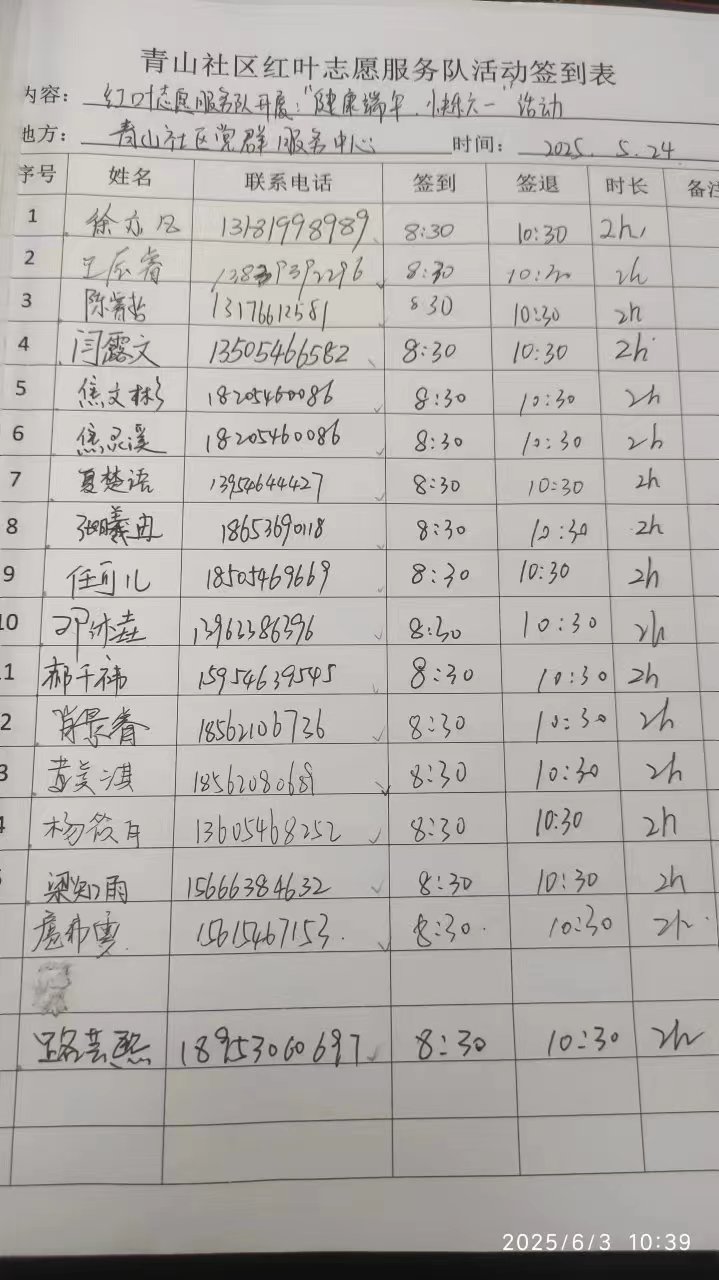 青山社区红叶志愿服务队活动签到表
内容： 红叶志愿服务队开展："健康端午，小烁六一"活动
地方： 青山社区党群服务中心 时间： 2025. 5. 24
序号 姓名 联系电话 签到 签退 时长 备注
1 徐亦凡 13181998989 8:30 10:30 2h
2 王辰睿 8:30 10:30 2h
3 陈 哲 13176612581 8:30 10:30 2h
4 闫露文 13505466582 8:30 10:30 2h
5 焦文彬 18205460086 8:30 10:30 2h
6 焦灵溪 18205460086 8:30 10:30 2h
7 夏楚语 13954644427 8:30 10:30 2h
8 张曦冉 18653690118 8:30 10:30 2h
9 任可儿 18505469669 8:30 10:30 2h
10 邓 垚 13963386396 8:30 10:30 2h
1 郝千祎 15954639545 8:30 10:30 2h
2 肖景睿 18562106736 8:30 10:30 2h
3 黄美淇 18562080689 8:30 10:30 2h
4 杨筱月 13605468252 8:30 10:30 2h
梁知雨 15666384632 8:30 10:30 2h
希雯 15615467153 8:30 10:30 2h
路芸熙 18953060697 8:30 10:30 2h
2025/6/3 10:39